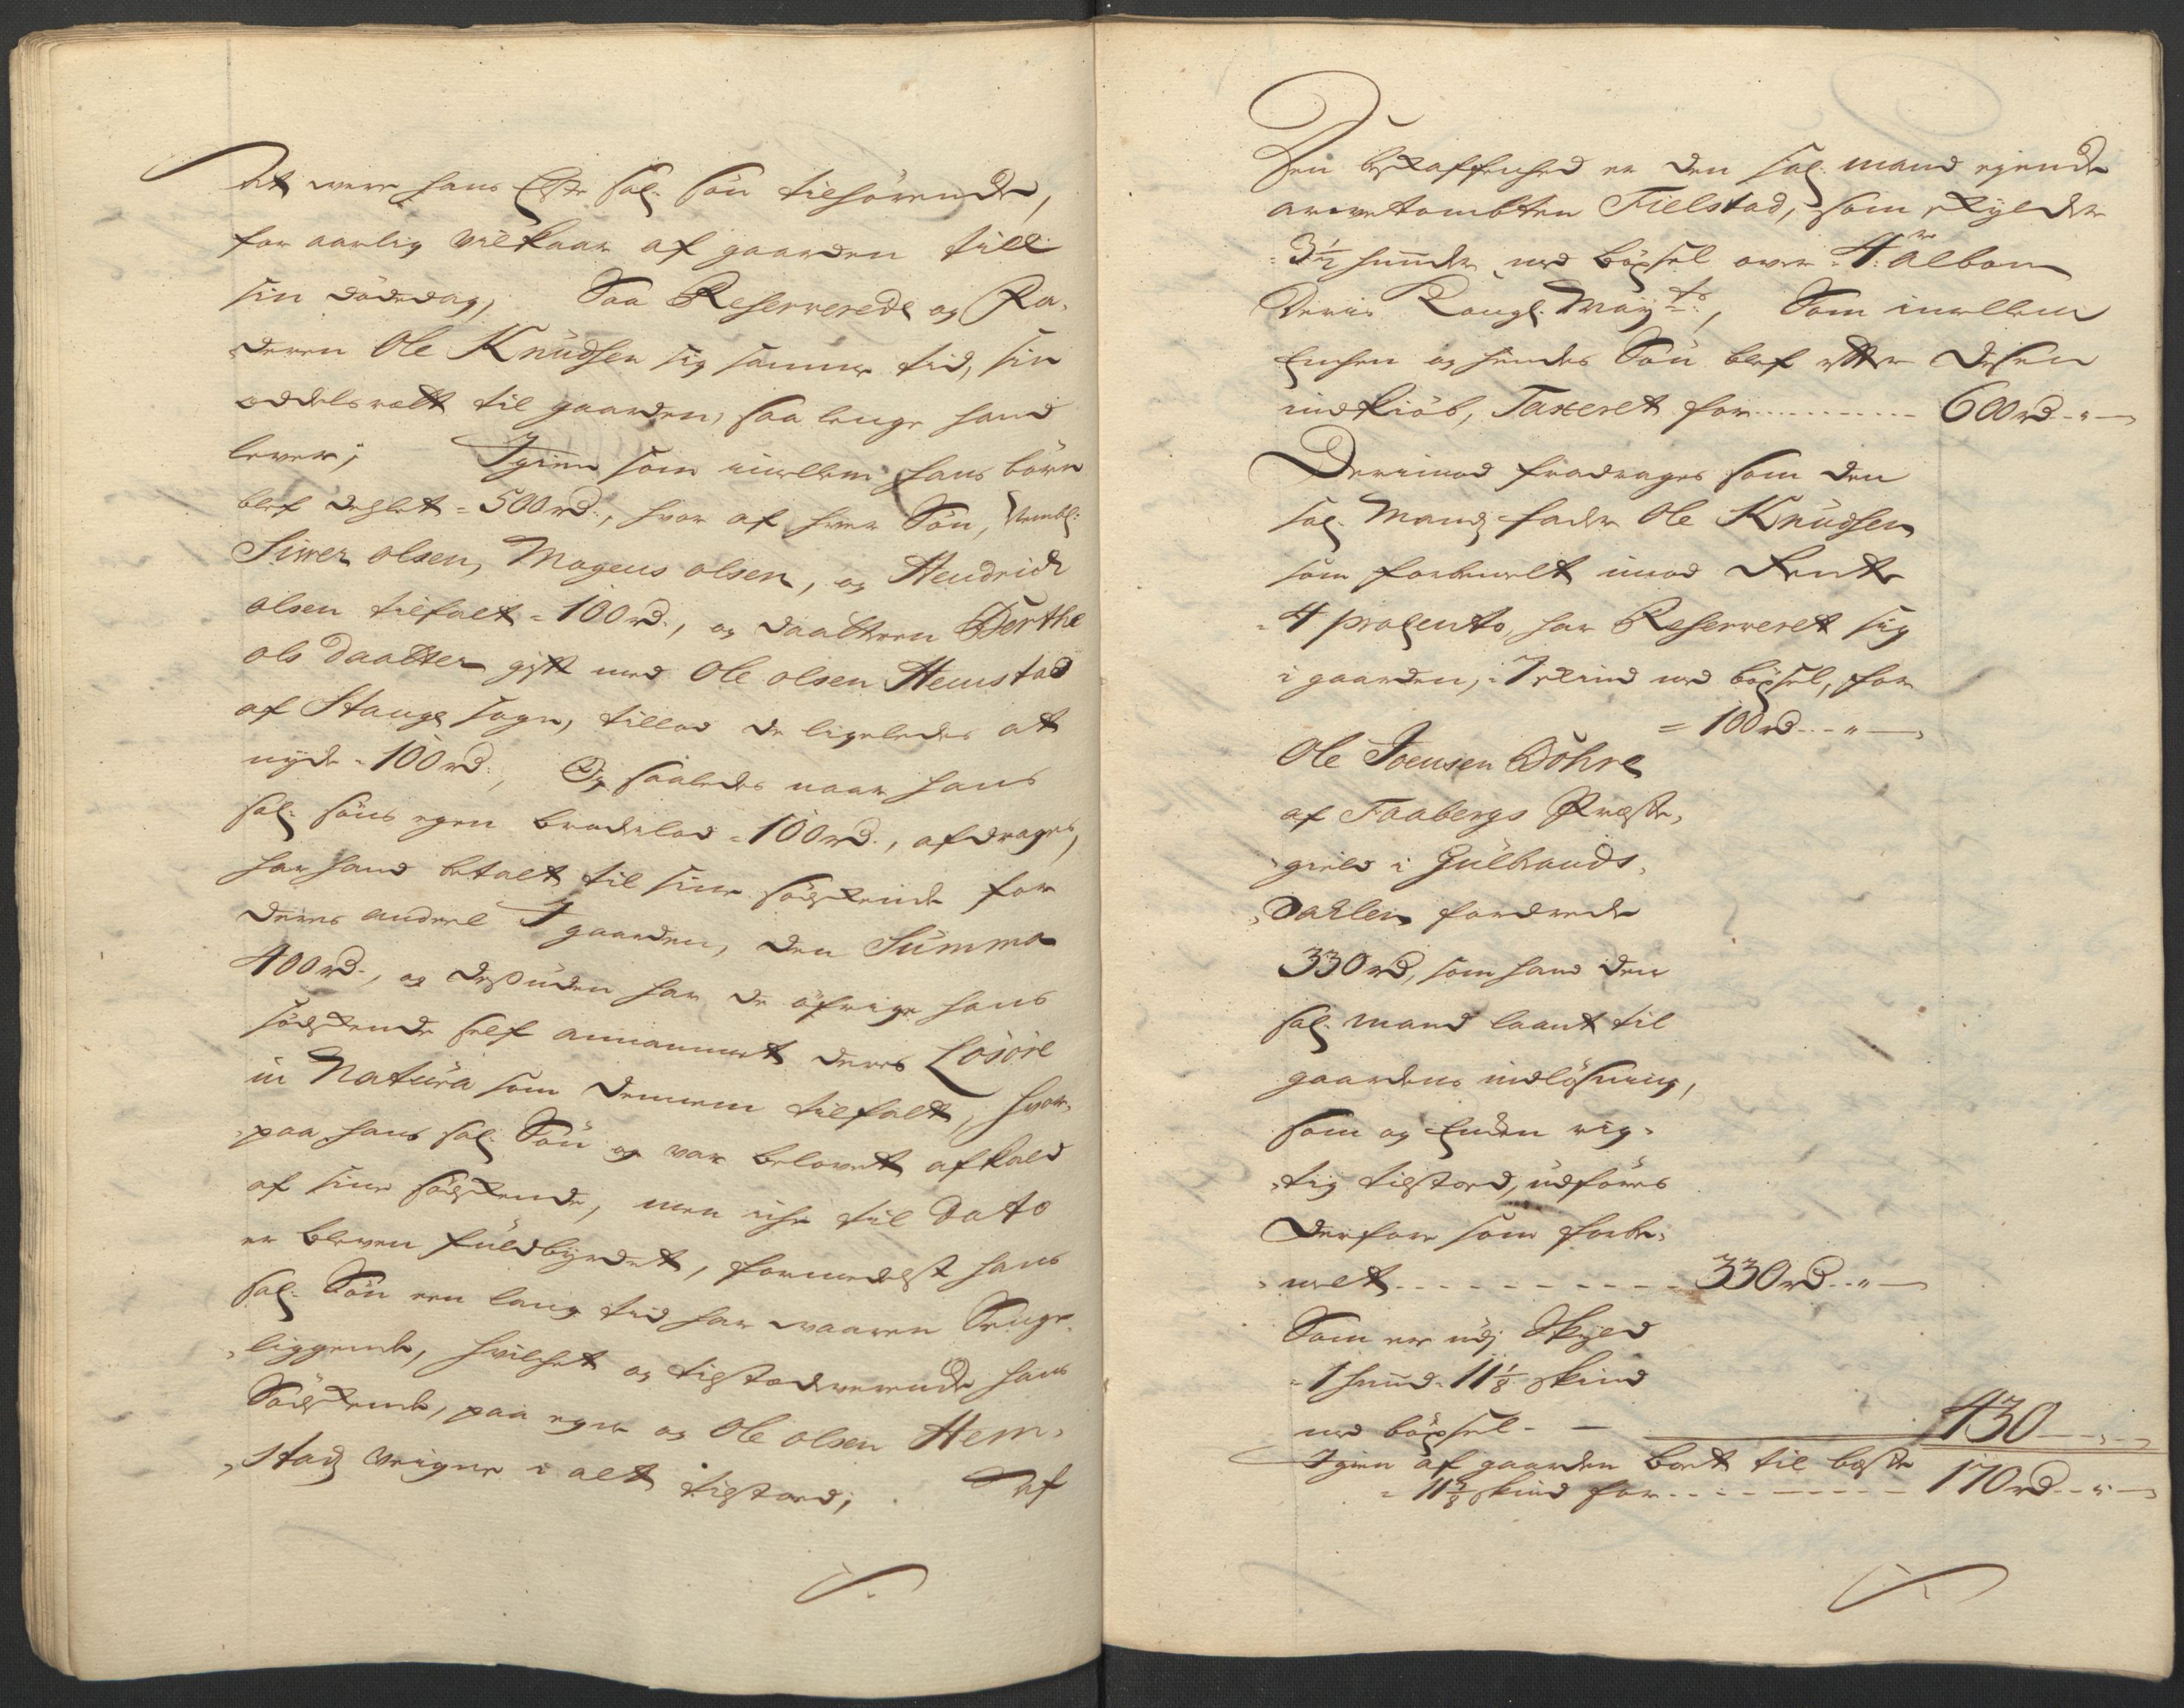 at were hans Elste Sal: Sön tilhörende,
for aarlig Vilkaar af gaarden till
sin dödedag, Saa Reserverede og Fa-
deren Ole Knüdsen sig samme tid, sin
oddelsrett til gaarden, saa lenge hand
lever; Igien som imellem hans börn
blef dehlet = 500 rd., hvor af hver Sön, Nembl:
Siver olsen, Mogens olsen, og Hendrich
olsen tilfalt = 100 rd., og daatteren Berthe
ols daatter gift med Ole olsen Hemstad
af Stange sogn, tillod de ligeledes at
nyde = 100 rd., Og saaledes naar hans
sal: söns egen broderlod = 100 rd., afdrages,
har hand betalt til sine södskende for
deres andeel I gaarden, den Summa
400 rd., og desuden har de öfrige hans
södskende self annammet deres Lösöre
in Natura som dennem tilfalt, hvor-
paa hans sal: Sön og var belovet afkald
af sine södskende, men iche til Dato
er bleven fuldbyrdet, formedelst hans
sal: Sön een lang tid har vaaren Senge-
liggende, hvilchet og tilstædeværende hans
Södskende, paa egne og Ole olsen Hem-
stads veigne i alt tilstoed; Af
Den beskaffenhed er den sal: mand ejende
arvetombten Fielstad, som skylder
3½ hunder med böxsel over 4 re: alboen
Deris Kongl: Mayts:, Som imellem
Enchen og hendes Sön blef efter desen
indkiöb, Taxeret for - - - 600 rd - " -
Derimod fradrages som den
sal: Mands fader Ole Knüdsen
som forbemelt imod Rente
4 procento, har Reserveret sig
i gaarden, 7 skind med böxsel, for
= 100 rd - " -
Ole Joensen Böhre
af Faabergs Præste-
gield i Gulbrands-
Dahlen fordrede
330 rd, som hand den
sal: mand laant til
gaardens indlösning,
som og Enchen rig-
tig tilstoed, udföres
derfore som forbe-
melt - - - 330 rd - " -
Som er udj Skyld
1 hund: 11⅛ skind
med böxsel - - 430 - " -
Igien af gaarden boet til beste
= 11⅞ skind for - - - 170 rd - " -